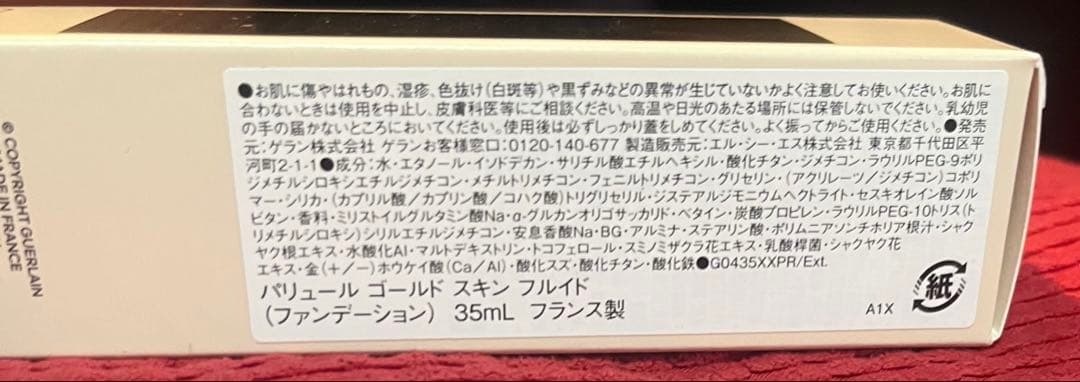 ●お肌に傷やはれもの、湿疹、色抜け(白斑等)や黒ずみなどの異常が生じていないかよく注意してお使いください。お肌に
合わないときは使用を中止し、皮膚科医等にご相談ください。高温や日光のあたる場所には保管しないでください。乳幼児
の手の届かないところにおいてください。使用後は必ずしっかり蓋をしめてください。よく振ってからご使用ください。●発売
元:ゲラン株式会社 ゲランお客様窓口:0120-140-677 製造販売元:エル・シー・エス株式会社 東京都千代田区平
河町2-1-1●成分:水・エタノール・イソドデカン・サリチル酸エチルヘキシル・酸化チタン・ジメチコン・ラウリルPEG-9ポリ
ジメチルシロキシエチルジメチコン・メチルトリメチコン・フェニルトリメチコン・グリセリン・(アクリレーツ/ジメチコン)コポリ
マー・シリカ・(カプリル酸/カプリン酸/コハク酸)トリグリセリル・ジステアルジモニウムヘクトライト・セスキオレイン酸ソル
ビタン・香料・ミリストイルグルタミン酸Na・α-グルカンオリゴサッカリド・ベタイン・炭酸プロピレン・ラウリルPEG-10トリス(ト
リメチルシロキシ)シリルエチルジメチコン・安息香酸Na・BG・アルミナ・ステアリン酸・ポリムニアソンチホリア根汁・シャク
ヤク根エキス・水酸化Al・マルトデキストリン・トコフェロール・スミノミザクラ花エキス・乳酸桿菌・シャクヤク花
エキス・金(+/-)ホウケイ酸(Ca/Al)・酸化スズ・酸化チタン・酸化鉄●G0435XXPR/Ext.
パリュール ゴールド スキン フルイド
(ファンデーション) 35mL フランス製
A1X
紙
© COPYRIGHT GUERLAIN
MADE IN FRANCE